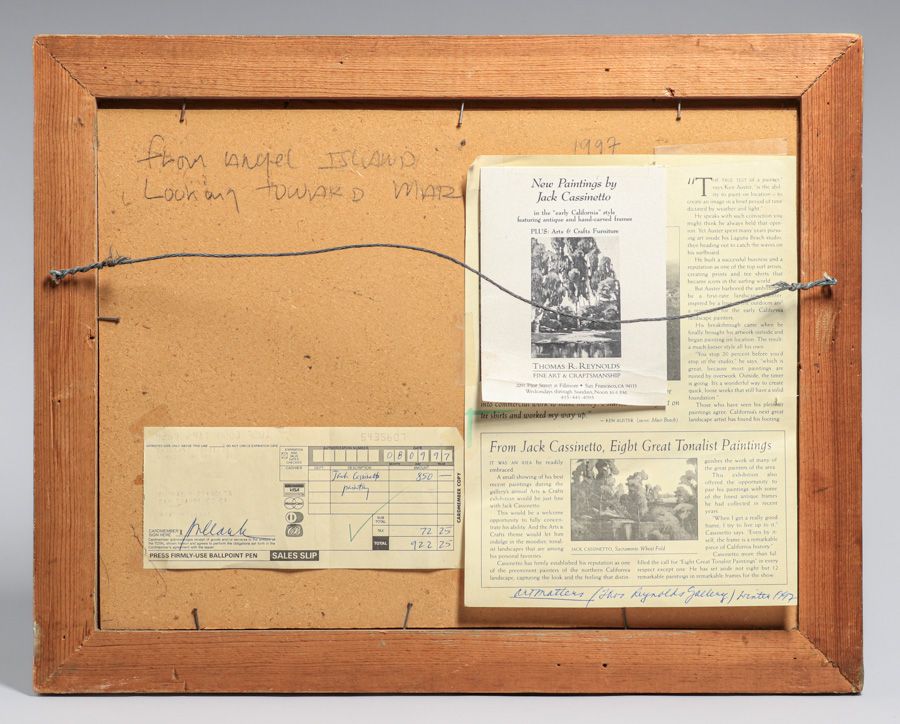 From Angel ISLAND
Looking TOWARD MAR
1997
New Paintings by
Jack Cassinetto
in the "early California" style
featuring antique and hand-carved frames
PLUS: Arts & Crafts Furniture
THOMAS R. REYNOLDS
FINE ART & CRAFTSMANSHIP
2291 Pine Street at Fillmore • San Francisco, CA 94115
Wednesdays through Sundays, Noon to 6 P.M.
415-441-4093
"THE TRUE TEST of a painter,"
says Ken Auster, "is the abil-
ity to paint on location — to
create an image in a brief period of time
dictated by weather and light."
He speaks with such conviction you
might think he always held that opin-
ion. Yet Auster spent many years pursu-
ing art inside his Laguna Beach studio,
then heading out to catch the waves on
his surfboard.
He built a successful business and a
reputation as one of the top surf artists,
creating prints and tee shirts that
became icons in the surfing world.
But Auster harbored the
be a first-rate landscape
inspired by
for the early California
landscape painters.
His breakthrough came when he
finally brought his artwork outside and
began painting on location. The result:
a much looser style all his own.
"You stop 20 percent before you'd
stop in the studio," he says, "which is
great, because most paintings are
ruined by overwork. Outside, the timer
is going. It's a wonderful way to create
quick, loose works that still have a solid
foundation."
Those who have seen his
paintings agree: California's next great
landscape artist has found his footing.
on
tee shirts and worked my way up.
— KEN AUSTER
From Jack Cassinetto, Eight Great Tonalist Paintings
IT WAS AN IDEA he readily
embraced.
A small showing of his best
recent paintings during the
gallery's annual Arts & Crafts
exhibition would be just fine
with Jack Cassinetto.
This would be a welcome
opportunity to fully concen-
trate his ability. And the Arts &
Crafts theme would let him
indulge in the moodier, tonal-
ist landscapes that are among
his personal favorites.
Cassinetto has firmly established his reputation as one
of the preeminent painters of the northern California
landscape, capturing the look and the feeling that distin-
JACK CASSINETTO, Sacramento Wheat Field
guishes the work of many of
the great painters of the area.
This exhibition also
offered the opportunity to
pair his paintings with some
of the finest antique frames
he had collected in recent
years.
"When I get a really good
frame, I try to live up to it,"
Cassinetto says. "Even by it-
self, the frame is a remarkable
piece of California history."
Cassinetto more than ful-
filled the call for "Eight Great Tonalist Paintings" in every
respect except one: He has set aside not eight but 12
remarkable paintings in remarkable frames for the show.
artmatters / Thos Reynolds Gallery / Winter 1997
5435607
DO NOT CIRCLE EXPIRATION DATE
EXPIRATION
DATE
CHECKED
AUTHORIZATION NUMBER
DATE
080997
CASHIER
DEPT.
DESCRIPTION
AMOUNT
Jack Cassinetto
850 —
painting
VISA
SUB
TOTAL
TAX
72 25
TOTAL
922 25
CARDMEMBER
SIGN HERE
PRESS FIRMLY-USE BALLPOINT PEN
SALES SLIP
CARDMEMBER COPY